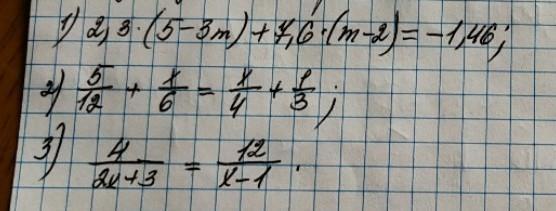 1) 2,3·(5-3m)+7,6·(m-2)=-1,46;
2) 5/12 + x/6 = x/4 + 1/3;
3) 4/(2x+3) = 12/(x-1).